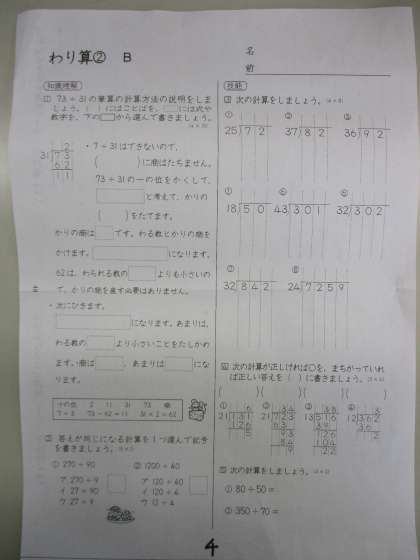 わり算② B
名
前
知識理解
① 73÷31の筆算の計算方法の説明をしま
しょう。( )にはことばを、□には式や
数字を、下の□から選んで書きましょう。
2
31 73
62
11
・7÷31はできないので、
( )に商はたちません。
73÷31の一の位をかくして、
と考えて、かりの
( )をたてます。
かりの商は□です。わる数とかりの商を
かけます。□になります。
62は、わられる数の□よりも小さいの
で、かりの商を直す必要はありません。
・次にひきます。
□になります。あまりは、
わる数の□より小さいことをたしかめ
ます。商は□、あまりは□にな
ります。
十の位 2 11 31 73 商
7÷3 73-62=11 31×2=62
② 答えが同じになる計算を1つ選んで記号
を書きましょう。
① 270÷90
ア 270÷9
イ 27÷90
ウ 27÷9
② 1200÷60
ア 120÷60
イ 120÷6
ウ 12÷6
技能
③ 次の計算をしましょう。
①
25 72
②
37 82
③
36 92
18 50
⑤
43 301
⑥
32 302
⑦
32 842
⑧
24 7259
④ 次の計算が正しければ○を、まちがっていれ
ば正しい答えを( )に書きましょう。
( ) ( ) ( ) ( )
⑤ 次の計算をしましょう。
① 80÷50=
② 350÷70=
4